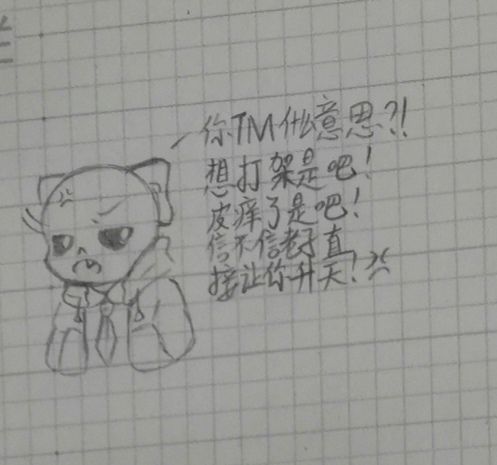 你TM什么意思?!
想打架是吧!
皮痒了是吧!
信不信老子直
接让你升天!